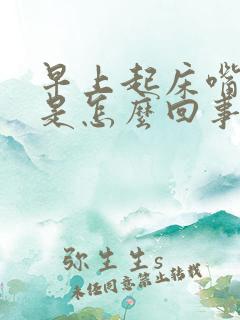 早上起床嘴
是怎麽回事
弥生生s
未经同意禁止转载